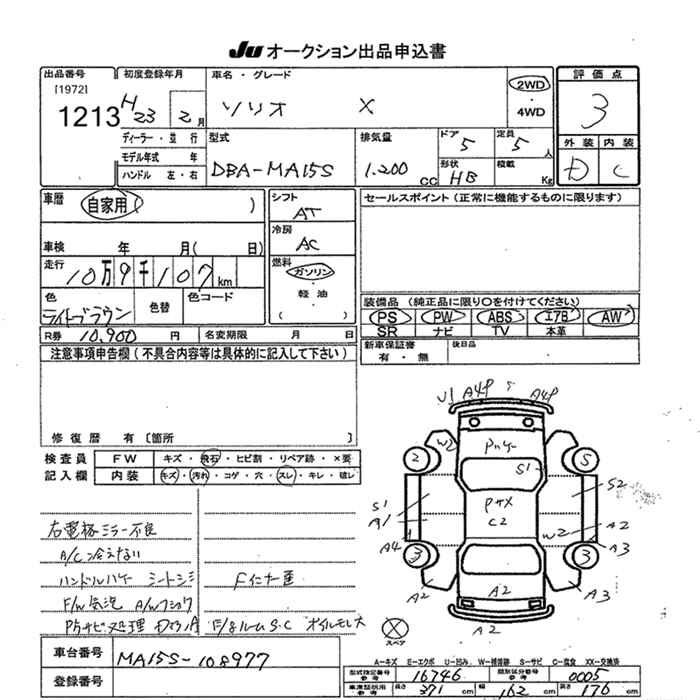 JU オークション出品申込書
出品番号
[1972]
1213
初度登録年月
H 23 2月
車名・グレード
ソリオ X
2WD
・
4WD
評価点
3
ディーラー・並行
モデル年式 年
ハンドル 左・右
型式
DBA-MA15S
排気量
1.200 cc
ドア
5
定員
5人
形状
HB
積載
Kg
外装 内装
D C
車歴
自家用 ( )
シフト
AT
セールスポイント (正常に機能するものに限ります)
車検 年 月( 日)
冷房
AC
走行
10万9千107km
燃料
ガソリン
・
軽油
色
ライトブラウン
色替
色コード
装備品 (純正品に限り○を付けてください)
PS PW ABS エアB AW
SR ナビ TV 本革
R券 10,900 円
名変期限 月 日
新車保証書
有・無
後日品
注意事項申告欄 (不具合内容等は具体的に記入して下さい)
修復歴 有 〔箇所 〕
検査員
記入欄
FW キズ・飛石・ヒビ割・リペア跡・×要
内装 キズ・汚れ・コゲ・穴・スレ・キレ・破レ
右電格ミラー不良
A/C冷えない
ハンドルハゲ シートシミ
F/W気泡
車台番号
MA15S-108977
登録番号
U1 A4P A4P
W2
2
S
S1
S1
A1
A4
C2
S2
A2
W2
3
3
A3
A2
A2
A3
A2
スペア
A-キズ E-エクボ U-凹み W-補修跡 S-サビ C-腐食 XX-交換済
型式指定番号
参考
16746
類別区分番号
参考
0005
長さ 371 cm
幅 162 cm
高さ 176 cm